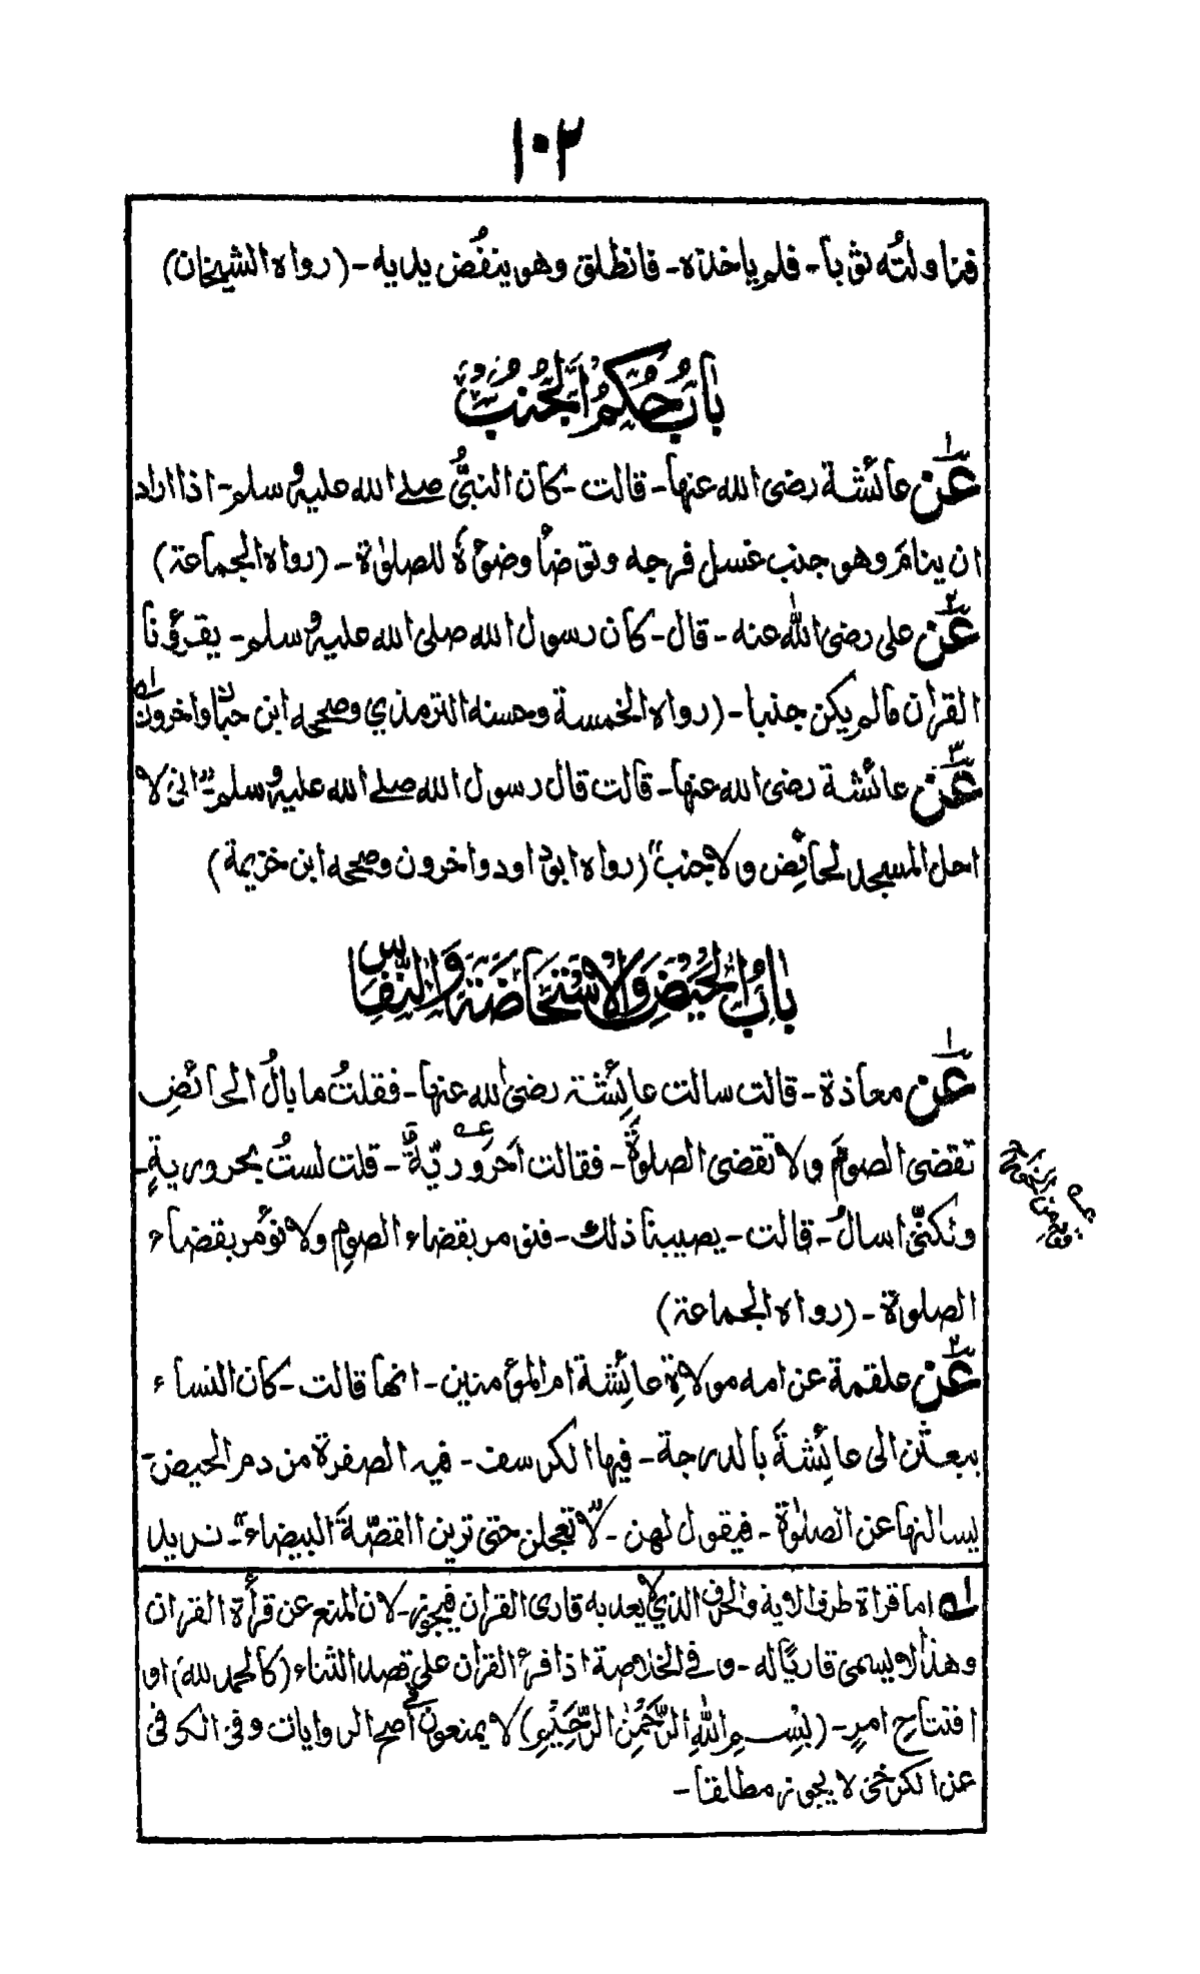 ١٠٢
فناولتُه ثوبا۔ فلم ياخذه۔ فانطلق وهو ينفُض يديه۔ (رواه الشيخان)
بابُ حُكمِ الجُنبِ
١
عَن عائشة رضى الله عنها۔ قالت۔ كان النبىُّ صلے الله عليهٖ وسلم۔ اذا اراد
ان ينامَ وهو جنب غسل فرجه وتوضأ وضوءهٗ للصلوٰة۔ (رواه الجماعة)
٢
عَن على رضى اللّٰه عنه۔ قال۔ كان رسول الله صلى الله عليهٖ وسلم۔ يقرؤنا
القرأن مالم يكن جنبا۔ (رواه الخمسة وحسنه الترمذي وصححه ابن حبان واخرون) ١ه
٣
عَن عائشة رضى الله عنها۔ قالت قال رسول الله صلے الله عليهٖ وسلم۔ "انى لا
احل المسجد لحائضٍ ولا جنب" (رواه ابوداود واخرون وصححه ابن خزيمة)
بابُ الحَيْضِ وَالاسْتِحَاضَةِ وَالنِّفَاسِ
١
عَن معاذة۔ قالت سالت عائِشة رضى الله عنها۔ فقلتُ ما بالُ الحائضِ
تقضى الصومَ ولا تقضى الصلوةَ۔ فقالت اَحَروُريّةٌ عه۔ قلت لستُ بحروريةٍ۔
ولكنّى اسالُ۔ قالت۔ يصيبنا ذلك۔ فنومر بقضاء الصومِ ولا نؤمر بقضاء
الصلوة۔ (رواه الجماعة)
٢
عَن علقمة عن امه مولاةِ عائِشة ام المؤمنين۔ انها قالت۔ كان النساء
يبعثن الى عائِشةَ بالدرجة۔ فيها الكرسف۔ فيه الصفرة من دم الحيض۔
يسالنها عن الصلوٰة۔ فيقول لهن۔ "لا تعجلن حتى ترين القصّةَ البيضاء"۔ تريد
١ه اما قراة طرف الاية والحرف الذي لا يعد به قارى القران فيجوز۔ لان المنع عن قرأة القران
وهذا لا يسمى قاريًا له۔ وفى الخلاصة اذا قرأ القران على قصد الثناء (كالحمد لله) او
افتتاح امرٍ۔ (بِسْمِ اللّٰهِ الرَّحْمٰنِ الرَّحِيْمِ) لا يمنعون فى أصح الروايات وفى الكرفى
عن الكرخى لا يجوز مطلقا۔